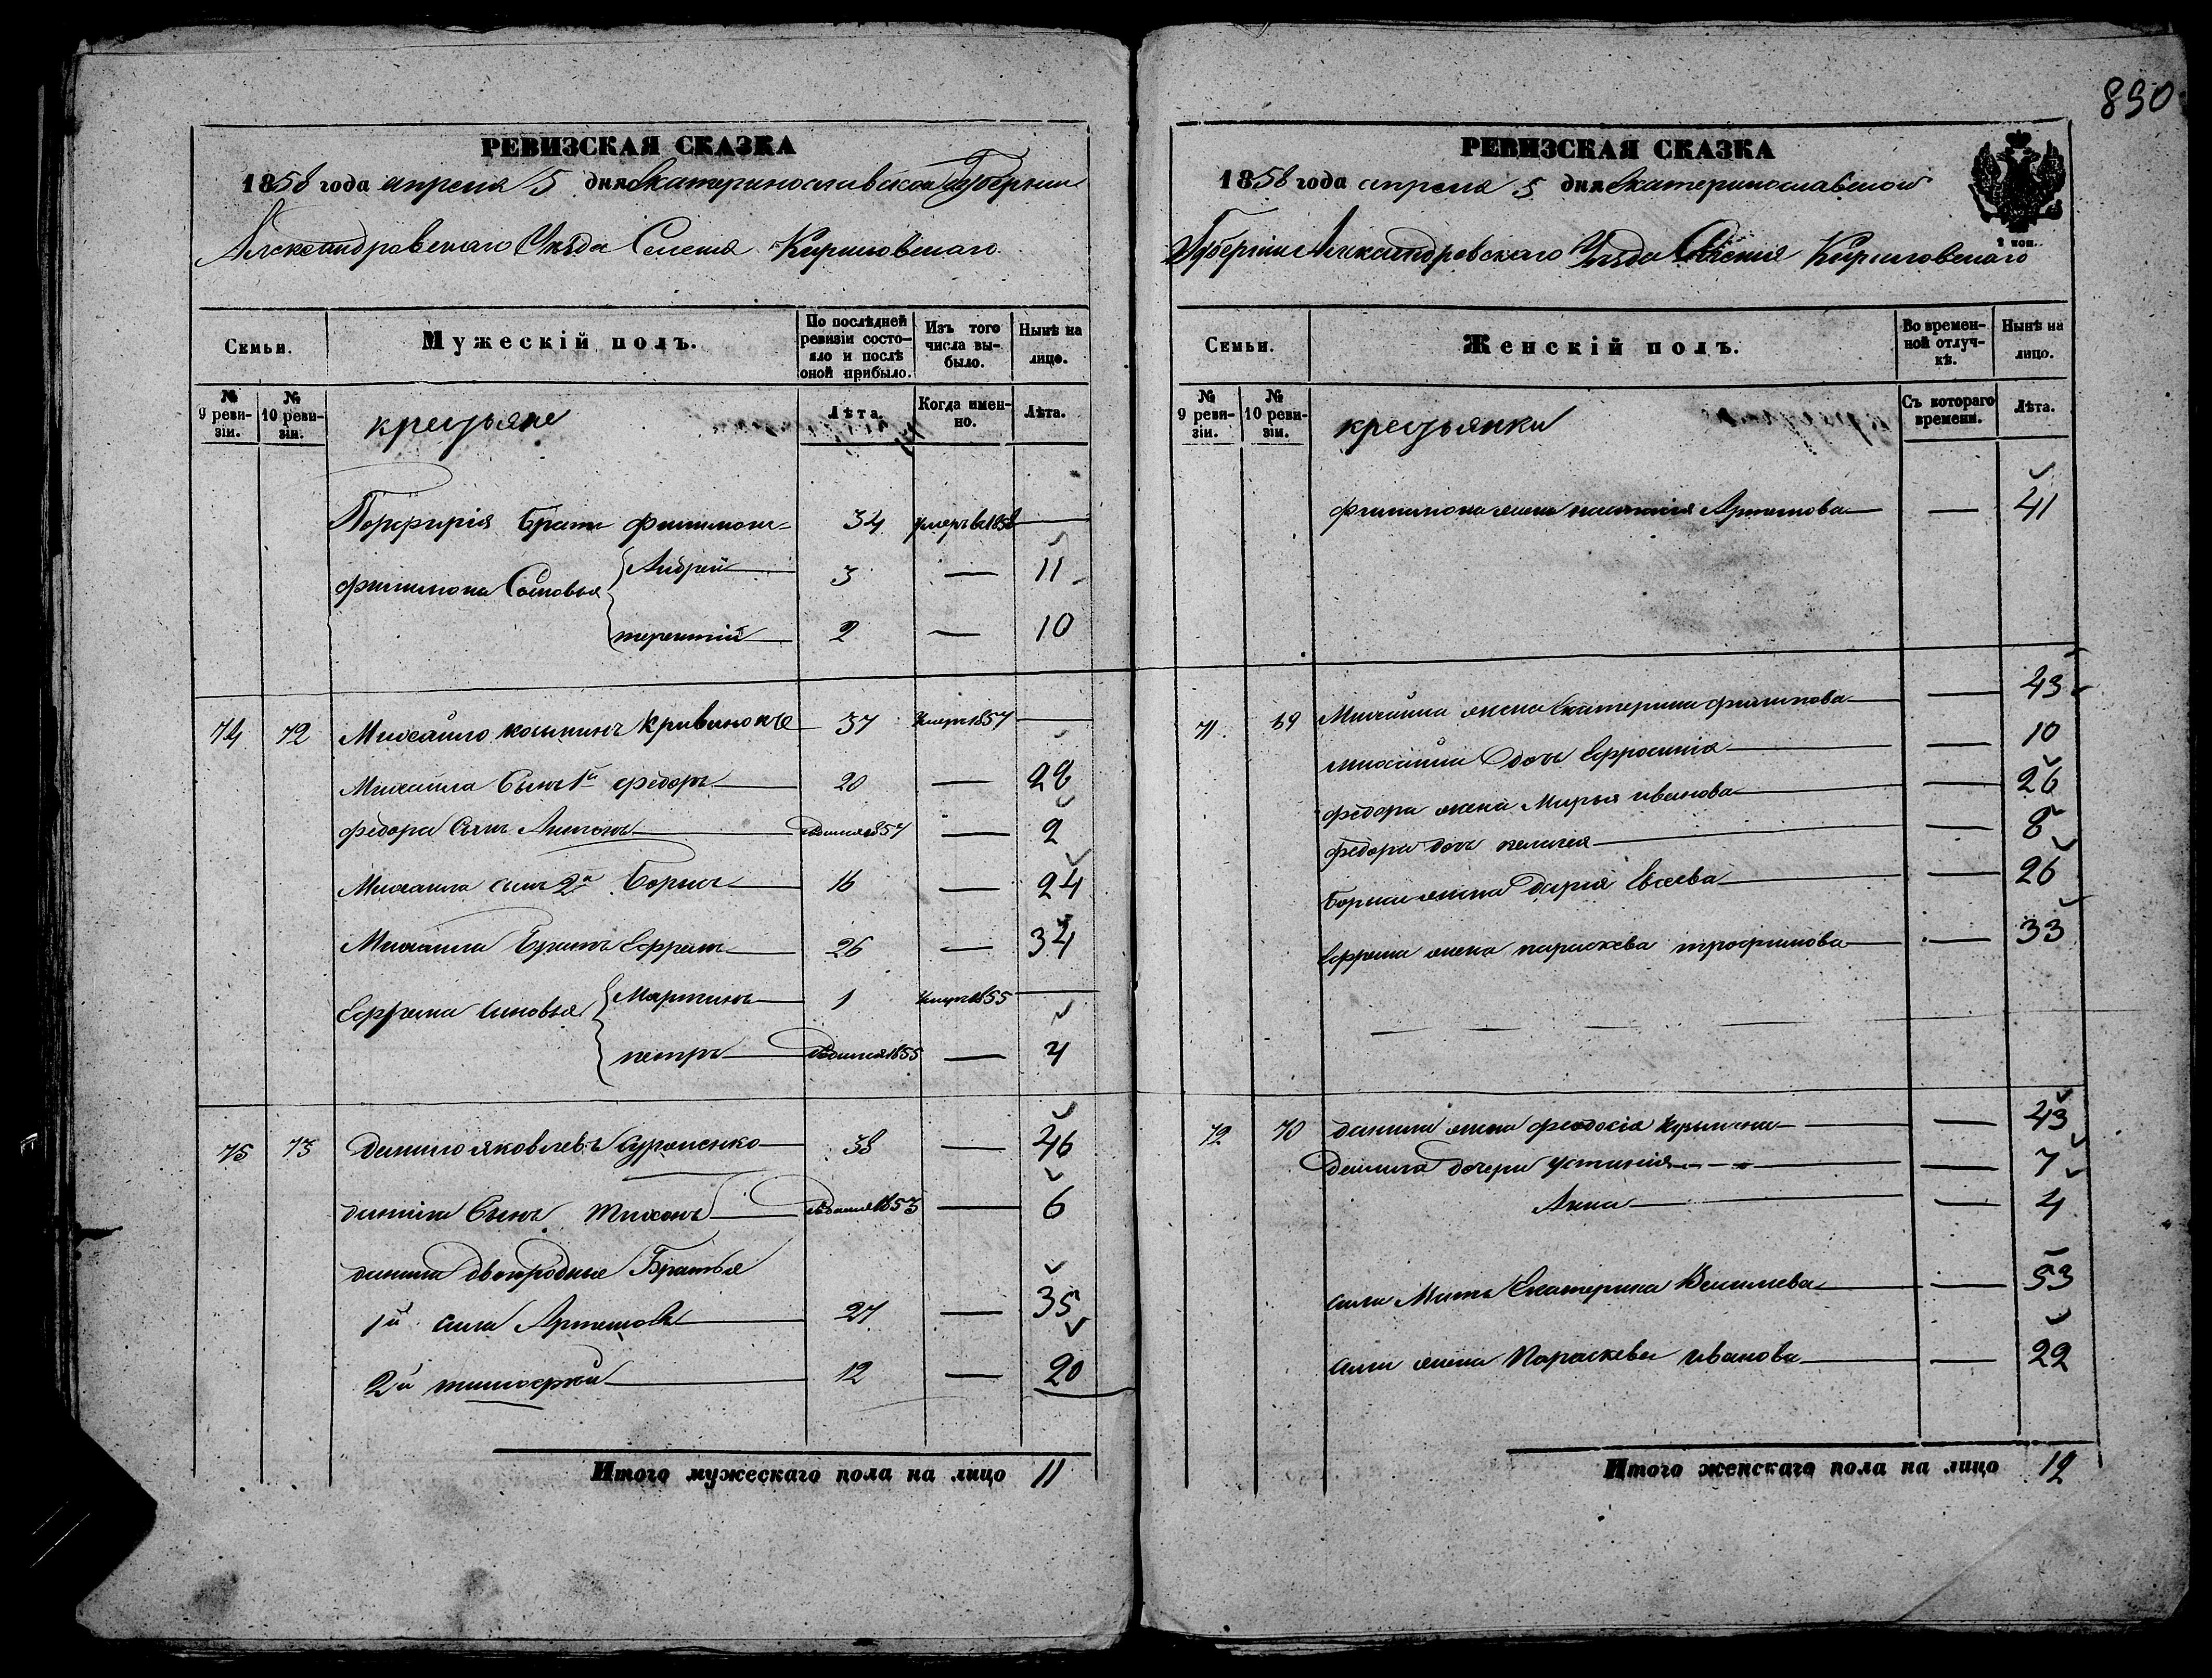 890
РЕВИЗСКАЯ СКАЗКА
1858 года апреля 5 дня Екатеринославской Губернии
Александровскаго Уезда Селения Кириловскаго
Семьи.
Мужескій полъ.
По послѣдней ревизіи состояло и послѣ оной прибыло.
Изъ того числа выбыло.
Нынѣ на лицо.
№ 9 ревизіи.
№ 10 ревизіи.
крестьяне
Лѣта.
Когда именно.
Лѣта.
Порфирія братъ филимонъ 34 умеръ в 1858 —
филимона Сыновья Андрей 3 — 11
терентій 2 — 10
74 72 Михайло косьминъ Кривинокъ 37 умеръ 1857 —
Михайла Сынъ 1й федоръ 20 — 28
федора Сынъ Антонъ 1857 — 2
Михайла сынъ 2й Борисъ 16 — 24
Михайла Братъ Ефремъ 26 — 34
Ефрема сыновья Мартинъ 1 умеръ 1855 —
петръ 1855 — 4
75 73 данило яковлевъ 38 — 46
данила Сынъ Тихонъ 1853 — 6
данила двоюродные Братья
1й сила Артемовъ 27 — 35
2й тимофѣй 12 — 20
Итого мужескаго пола на лицо 11
РЕВИЗСКАЯ СКАЗКА
1858 года апреля 5 дня Екатеринославской
2 коп.
Губерніи Александровскаго Уезда Селения Кириловскаго
Семьи.
Женскій полъ.
Во временной отлучкѣ.
Нынѣ на лицо.
№ 9 ревизіи.
№ 10 ревизіи.
крестьянки
Съ котораго времени.
Лѣта.
филимона жена настасія Артемова — 41
71 69 Михайла жена Екатерина филипова — 43
михайла дочь Ефросинія — 10
федора жена Марья иванова — 26
федора дочь пелагея — 8
Бориса жена Дарія Евсеева — 26
Ефрема жена параскева трофимова — 33
72 70 данила жена феодосія — 43
данила дочери устинія — 7
Анна — 4
силы Мать Екатерина Васильева — 53
силы жена Параскева иванова — 22
Итого женскаго пола на лицо 12